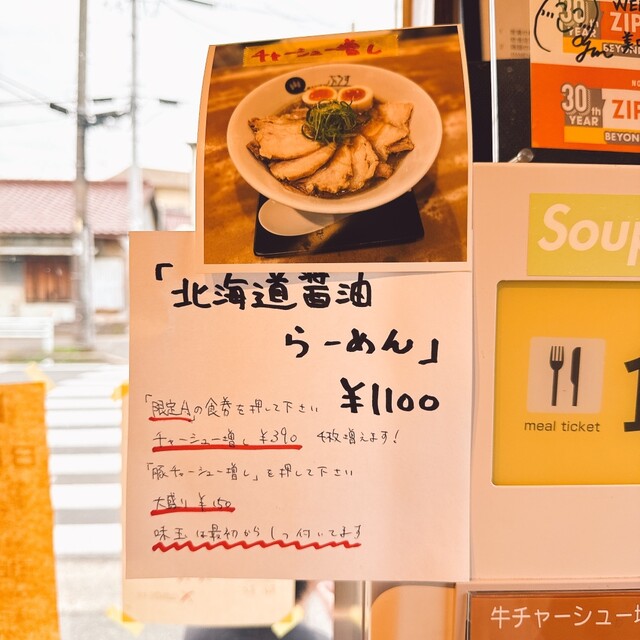 チャーシュー増し
「北海道醤油
らーめん」
¥1100
「限定A」の食券を押して下さい
チャーシュー増し ¥390 4枚増えます!
「豚チャーシュー増し」を押して下さい
大盛り ¥150
味玉は最初から1つ付いてます
30th
YEAR
ZIP
BEYON
30th
YEAR
ZIP
BEYON
Soup
meal ticket
1
牛チャーシュー増
日